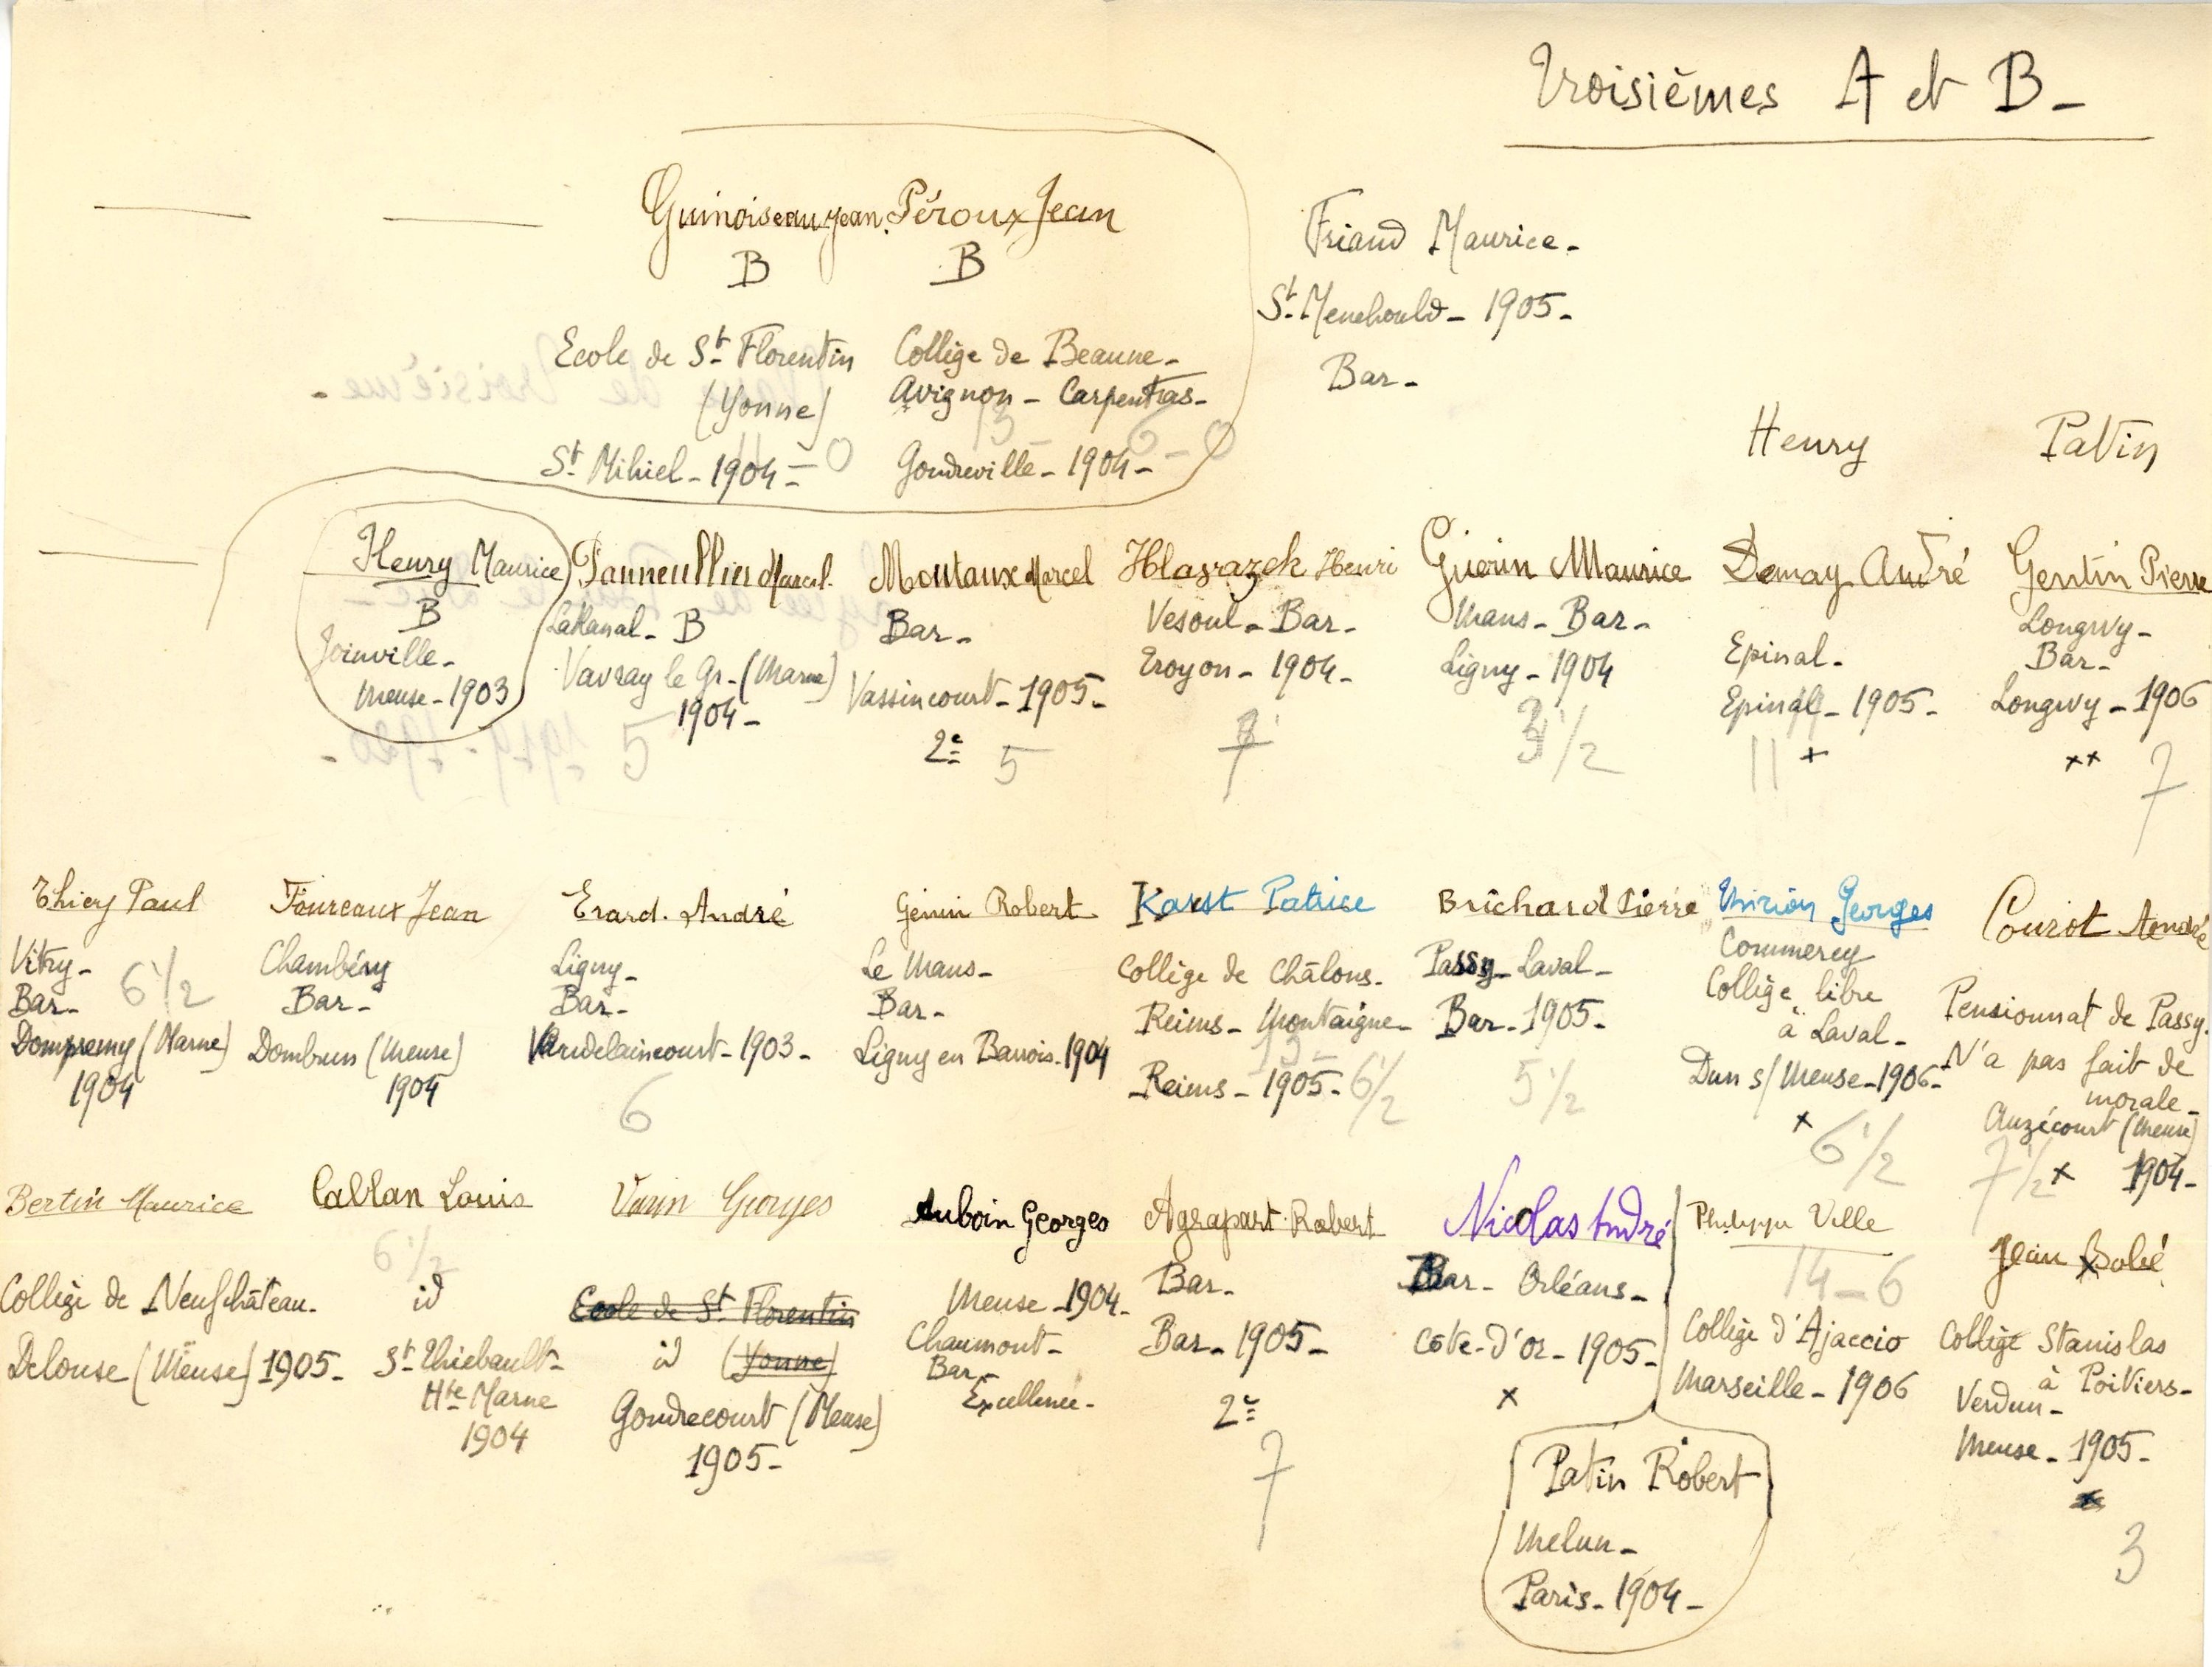 Troisièmes A et B -
Guinoiseau Jean. Péroux Jean
B B
Ecole de St Florentin
(Yonne)
St Mihiel - 1904 - 0
Collège de Beaune -
Avignon - Carpentras -
13 - 6 - 0
Gondreville - 1904 -
Friand Maurice -
St Menehould - 1905 -
Bar -
Henry
Patin
Henry Maurice
B
Joinville -
Meuse - 1903
Marcel.
Lakanal - B
Vavray le Gr. (Marne)
1904 -
5
Montaux Marcel
Bar -
Vassincourt - 1905 -
2e 5
Henri
Vesoul - Bar -
Troyon - 1904 -
7
Guérin Maurice
Mans - Bar -
Ligny - 1904
1/2
Demay André
Epinal -
Epinal - 1905 -
11 +
Gentin Pierre
Longwy -
Bar -
Longwy - 1906
xx 7
Thiery Paul
Vitry -
Bar - 6 1/2
Dompremy (Marne)
1904
Foureaux Jean
Chambéry
Bar -
(Meuse)
1904
Erard. André
Ligny -
Bar -
Vaudelaincourt - 1903 -
6
Genin Robert
Le Mans -
Bar -
Ligny en Barrois - 1904
Karst Patrice
Collège de Châlons -
Reims - Montaigne -
13 -
Reims - 1905 - 6 1/2
Brichard Pierre
Passy - Laval -
Bar - 1905 -
5 1/2
Thirion Georges
Commercy
Collège libre
à Laval -
Dun s/ Meuse - 1906 -
x
6 1/2
Courot André
Pensionnat de Passy.
N'a pas fait de
morale -
Auzécourt (Meuse)
7 1/2 x 1904 -
Bertin Maurice
Collège de Neufchâteau -
Delouse (Meuse) 1905 -
Louis
6 1/2
id
St Thiebault -
Hte Marne
1904
Varin Georges
Ecole de St Florentin
id (Yonne)
Gondrecourt (Meuse)
1905 -
Auboin Georges
Meuse - 1904 -
Chaumont -
Bar -
Excellence -
Agrapart Robert
Bar -
Bar - 1905 -
2e
7
Nicolas André
Bar - Orléans -
Côte-d'Or - 1905 -
x
Philippe Ville
14 - 6
Collège d'Ajaccio
Marseille - 1906
Patin Robert
Melun -
Paris - 1904 -
Jean
Collège Stanislas
à Poitiers -
Verdun -
Meuse - 1905 -
x
3